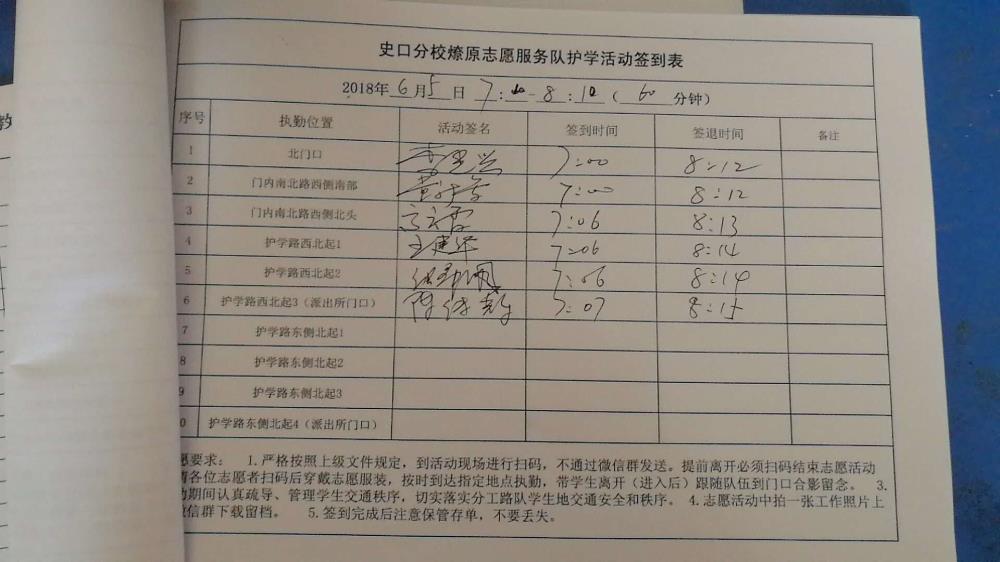 史口分校燎原志愿服务队护学活动签到表
2018年 6 月 5 日 7: - 8:10 ( 60 分钟)
序号 执勤位置 活动签名 签到时间 签退时间 备注
1 北门口 7:00 8:12
2 门内南北路西侧南部 7:00 8:12
3 门内南北路西侧北头 7:06 8:13
4 护学路西北起1 王建华 7:06 8:14
5 护学路西北起2 7:06 8:14
6 护学路西北起3（派出所门口） 7:07 8:15
7 护学路东侧北起1
8 护学路东侧北起2
9 护学路东侧北起3
0 护学路东侧北起4（派出所门口）
愿要求： 1.严格按照上级文件规定，到活动现场进行扫码，不通过微信群发送。提前离开必须扫码结束志愿活动
请各位志愿者扫码后穿戴志愿服装，按时到达指定地点执勤，带学生离开（进入后）跟随队伍到门口合影留念。 3.
动期间认真疏导、管理学生交通秩序，切实落实分工路队学生地交通安全和秩序。 4.志愿活动中拍一张工作照片上
微信群下载留档。 5.签到完成后注意保管存单，不要丢失。